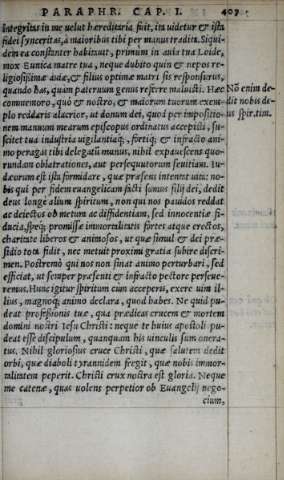 PARAPHR. CAP. I. 407
integritas in me uelut hæreditaria fuit, ita uidetur & ista
fidei synceritas, à maioribus tibi per manus tradita. Siqui-
dem ea constanter habitauit, primum in auia tua Loide,
mox Eunica matre tua, neque dubito quin & nepos re-
ligiosissimæ auiæ, & filius optimæ matri sis responsurus,
quando has, quàm paternum genus referre maluisti. Hæc
commemoro, quò & nostro, & maiorum tuorum exem-
plo reddaris alacrior, ut donum dei, quod per impositio-
nem manuum mearum episcopus ordinatus accepisti, su-
scitet tua industria uigilantiaq́;, fortiq́; & infracto ani-
mo peragas tibi delegatū munus, nihil expauescens quo-
rundam oblatrationes, aut persequutorum sæuitiam. Iu-
dæorum est ista formidare, quæ præsens intentet uita: no-
bis qui per fidem euangelicam facti sumus filij dei, dedit
deus longè alium spiritum, non qui nos pauidos reddat
ac deiectos ob metum ac diffidentiam, sed innocentiæ fi-
ducia, speq́; promissæ immortalitatis fortes atque erectos,
charitate liberos & animosos, ut quæ simul & dei præ-
sidio tota fidit, nec metuit proximi gratia subire discri-
men. Postremò qui nos non sinat animo perturbari, sed
efficiat, ut semper præsenti & infracto pectore perseue-
remus. Hunc igitur spiritum cum acceperis, exere uim il-
lius, magnoq́; animo declara, quod habes. Ne quid pu-
deat professionis tuæ, qua prædicas crucem & mortem
domini nostri Iesu Christi: neque te huius apostoli pu-
deat esse discipulum, quanquam his uinculis sum onera-
tus. Nihil gloriosius cruce Christi, quæ salutem dedit
orbi, quæ diaboli tyrannidem fregit, quæ nobis immor-
talitatem peperit. Christi crux nostra est gloria. Neque
me catenæ, quas uolens perpetior ob Euangelij nego-
cium,
Nō enim de-
dit nobis de-
us spir.tim.